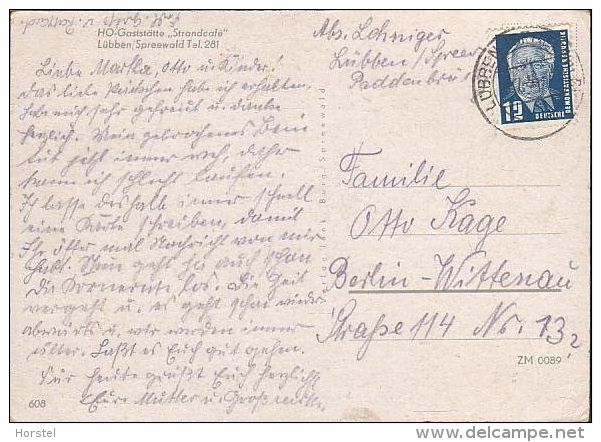 HO-Gaststätte „Strandcafé"
Lübben/Spreewald Tel. 281
Liebe Marta, Otto u. Kinder!
Das liebe Päckchen habe ich erhalten,
habe mich sehr gefreut u. danke
herzlich. Mein gebrochenes Bein
tut jetzt immer weh, daher
kann ich schlecht laufen.
Ich lasse deshalb immer schnell
eine Karte schreiben, damit
Ihr öfter mal Nachricht von mir
habt. Nun geht ja auch schon
die Kornernte los. Die Zeit
vergeht u. es geht schon wieder
abwärts u. wir werden immer
älter. Laßt es Euch gut gehen.
Für heute grüßt Euch herzlich
Eure Mutter u.
608
Burg, Spreewald
Abs. Lehniger
Lübben/Spree
LÜBBEN
12
DEUTSCHE
DEMOKRATISCHE REPUBLIK
Familie
Otto Kage
Berlin-Wittenau
Straße 114 Nr. 13
ZM 0089
Horstel
www.delcampe.net